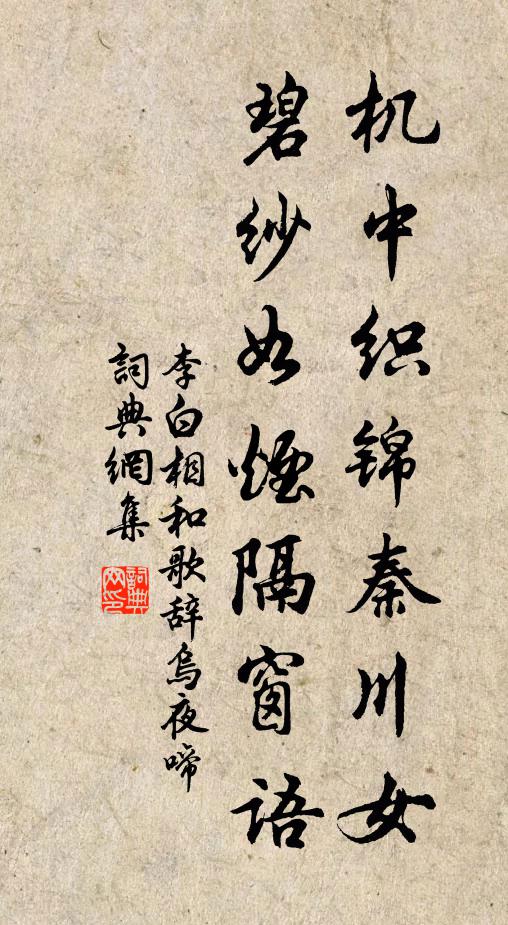 机中织锦秦川女
碧纱如烟隔窗语
李白相和歌辞烏夜啼
詞典網集
詞典
网印